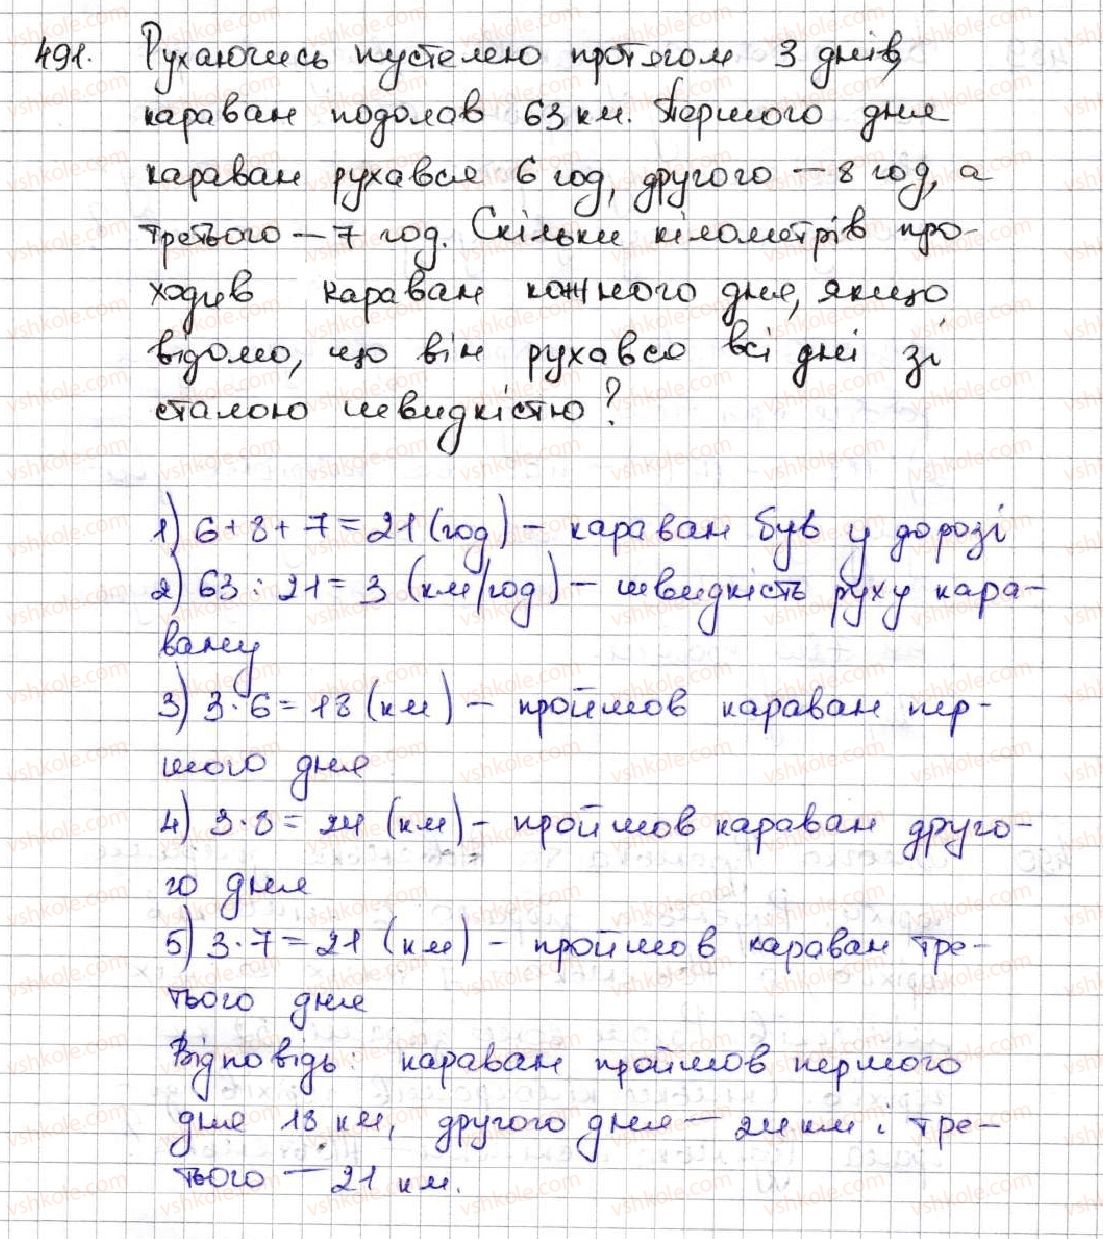 491. Рухаючись пустелею протягом 3 днів,
караван подолав 63 км. Першого дня
караван рухався 6 год, другого — 8 год, а
третього — 7 год. Скільки кілометрів про-
ходив караван кожного дня, якщо
відомо, що він рухався всі дні зі
сталою швидкістю?
1) 6+8+7=21 (год) – караван був у дорозі
2) 63:21=3 (км/год) – швидкість руху кара-
вану
3) 3·6=18 (км) – пройшов караван пер-
шого дня
4) 3·8=24 (км) – пройшов караван друго-
го дня
5) 3·7=21 (км) – пройшов караван тре-
тього дня
Відповідь: караван пройшов першого
дня 18 км, другого дня — 24 км і тре-
тього — 21 км.